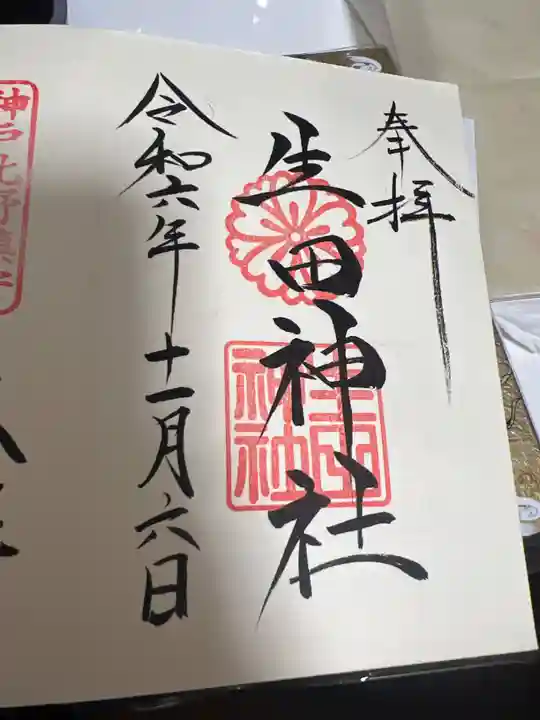 奉拝
生田神社
生田神社
令和六年十一月六日
神戸北野